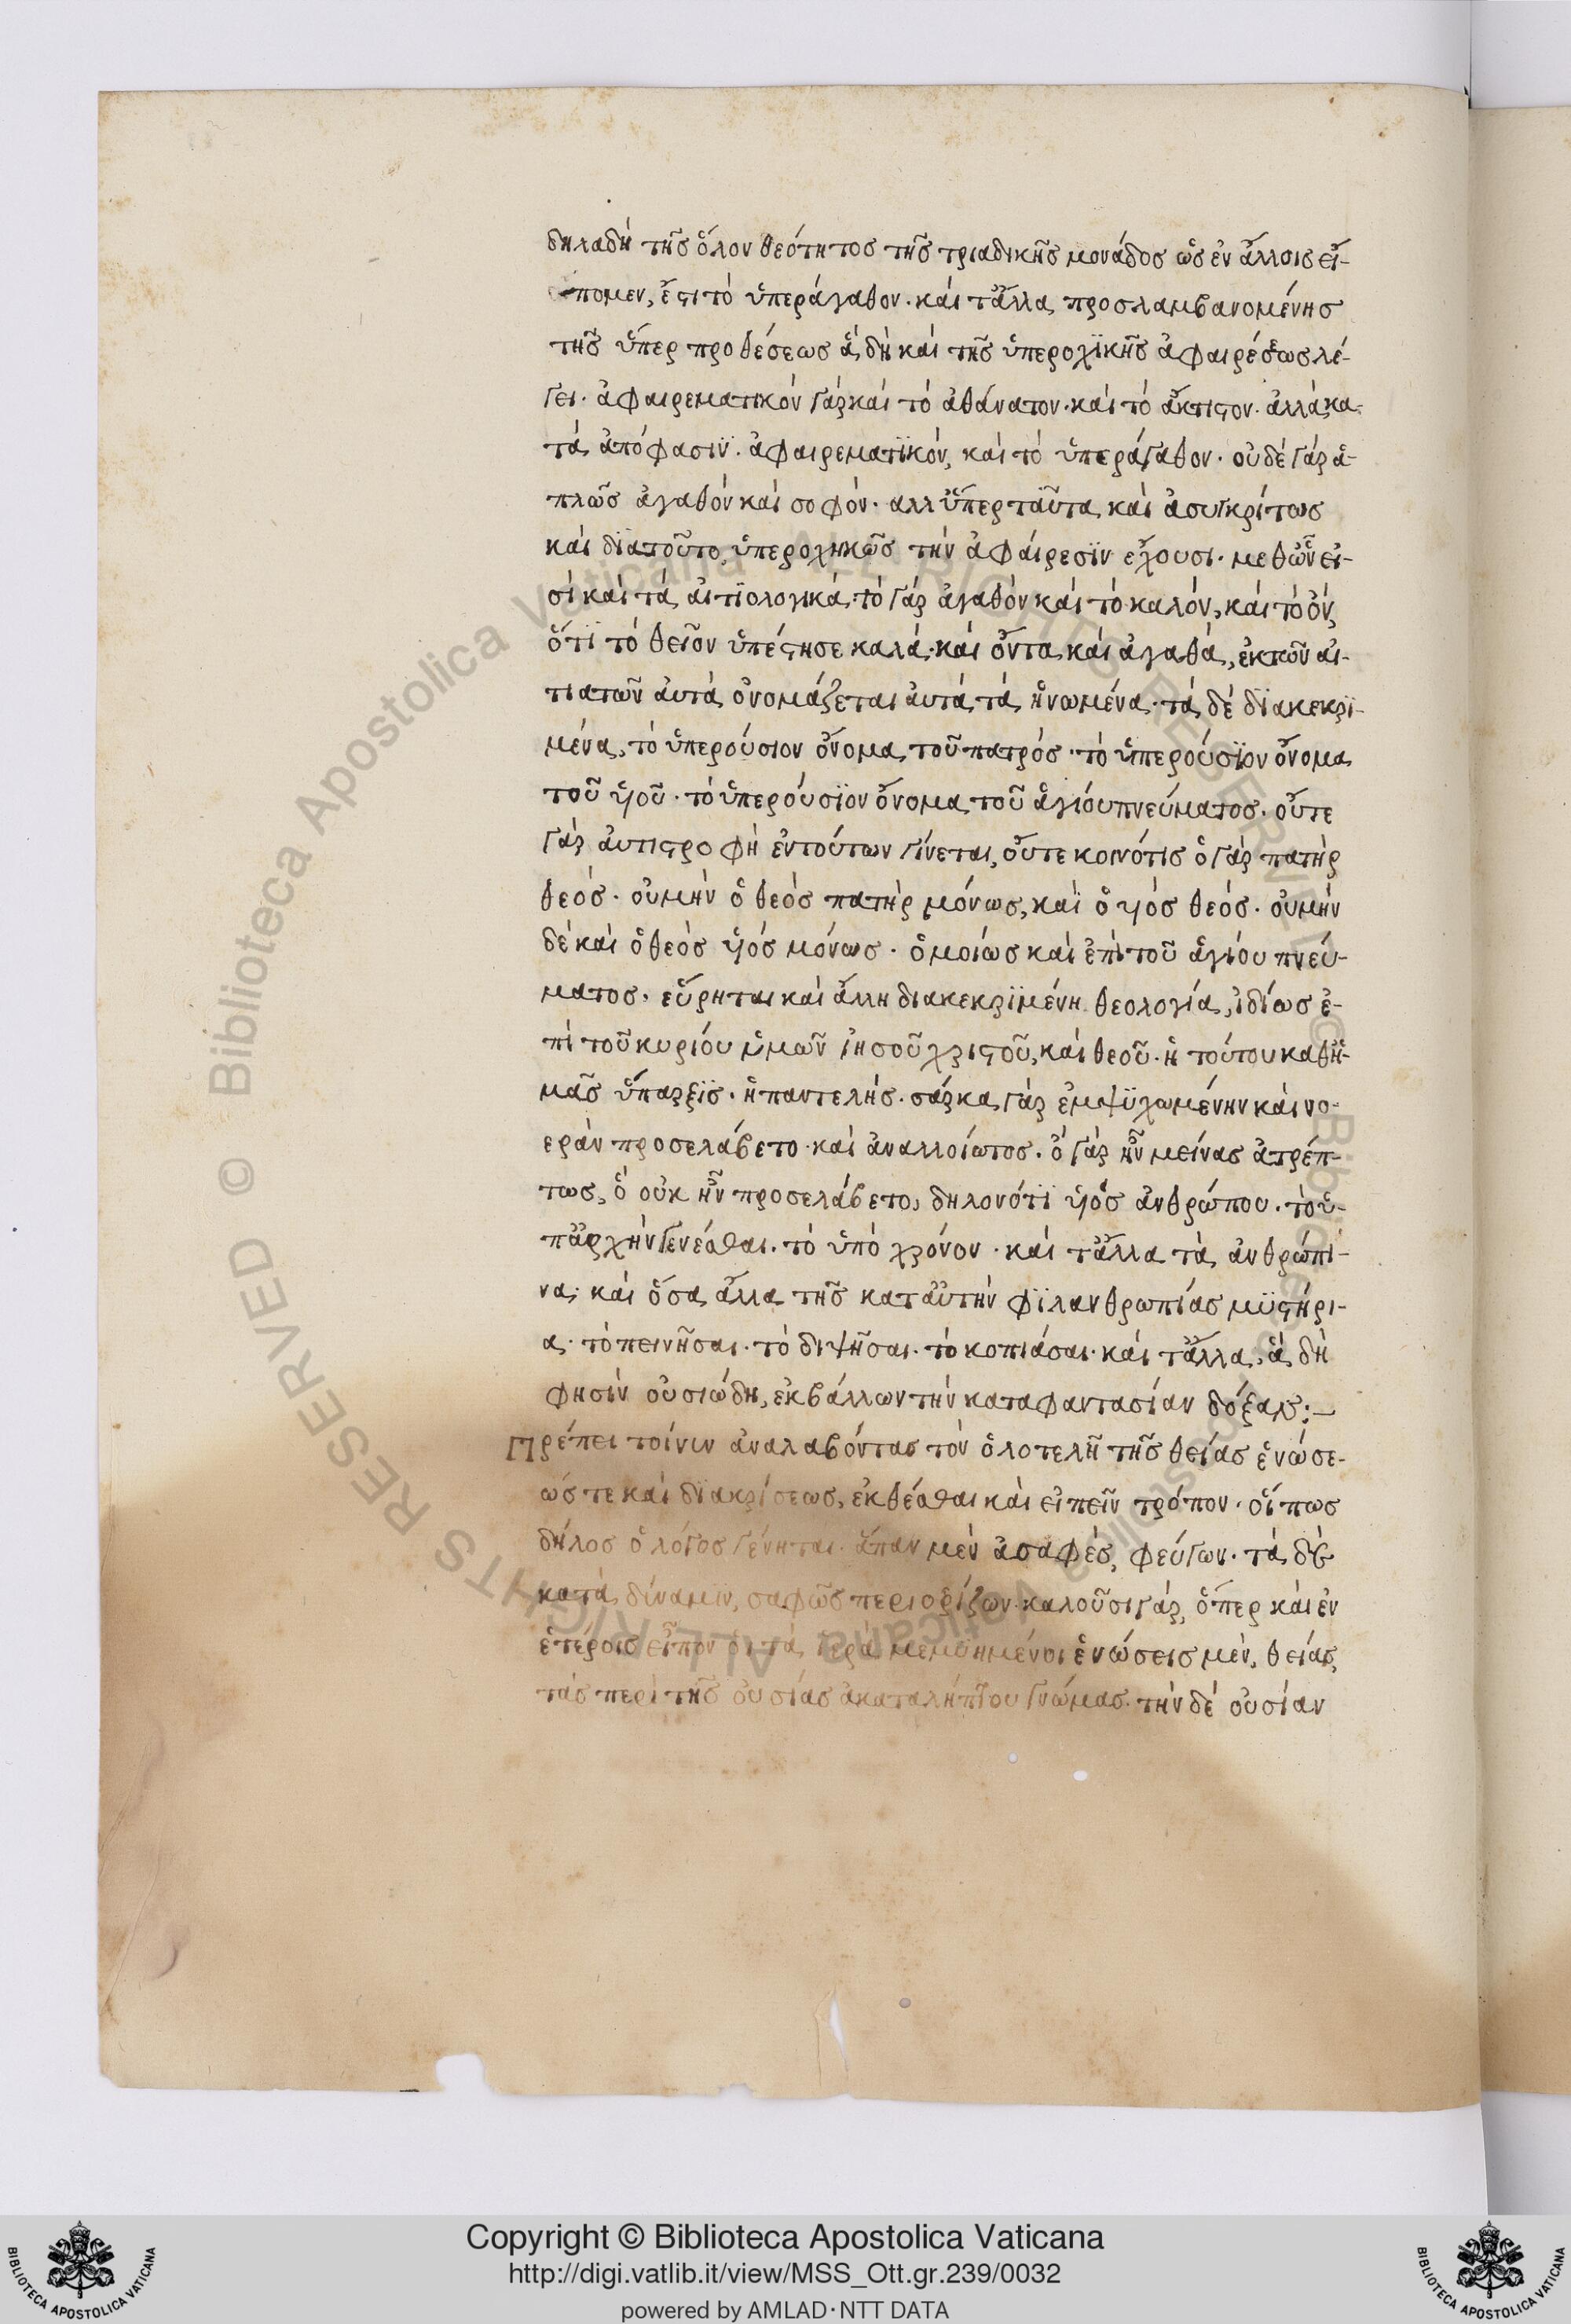 δηλαδὴ τῆς ὅλον θεότητος τῆς τριαδικῆς μονάδος ὡς ἐν ἄλλοις εἴ-
πομεν, ἔστι τὸ ὑπεράγαθον· καὶ τἆλλα προσλαμβανομένης
τῆς ὕπερ προθέσεως ἃ δὴ καὶ τῆς ὑπεροχϊκῆς ἀφαιρέσεως λέ-
γει· ἀφαιρεματικὸν γὰρ καὶ τὸ ἀθάνατον· καὶ τὸ ἄκτιστον· ἀλλὰ κα-
τὰ ἀπόφασιν· ἀφαιρεματϊκὸν, καὶ τὸ ὑπεράγαθον· οὐδὲ γὰρ ἁ-
πλῶς ἀγαθὸν καὶ σοφόν· αλλ ὕπερ ταῦτα καὶ ἀσυγκρίτως
καὶ δϊατοῦτο, ὑπεροχηκῶς τὴν ἀφαίρεσϊν ἔχουσι· μεθῶν εἰ-
σὶ καὶ τὰ αἰτϊολογικά, τὸ γὰρ ἀγαθὸν καὶ τὸ καλόν, καὶ τὸ ὄν,
ὅτϊ τὸ θεῖον ὑπέστησε καλά· καὶ ὄντα καὶ ἀγαθά, ἐκ τῶν αἰ-
τιατῶν ἀυτὰ ὀνομάζεται ἀυτὰ τὰ ἡνωμένα· τὰ δὲ δϊακεκρϊ-
μένα, τὸ ὑπερούσιον ὄνομα τοῦ πατρός· τὸ ὑπερούσϊον ὄνομα
τοῦ υἱοῦ· τὸ ὑπερούσϊον ὄνομα τοῦ ἁγίου πνεύματος· οὔτε
γὰρ ἀντιστροφὴ ἐν τούτων γίνεται, οὔτε κοινότις ὁ γὰρ πατὴρ
θεός· οὐ μὴν ὁ θεὸς πατὴρ μόνως, καὶ ὁ υἱὸς θεός· οὐ μὴν
δὲ καὶ ὁ θεὸς υἱὸς μόνως· ὁμοίως καὶ ἐπὶ τοῦ ἁγίου πνεύ-
ματος· εὕρηται καὶ ἄλλη διακεκρϊμένη θεολογία, ἰδίως ἐ-
πὶ τοῦ κυρίου ἡμῶν ἰησοῦ χριστοῦ, καὶ θεοῦ· ἡ τούτου καθἡ-
μᾶς ὕπαρξϊς· ἡ παντελής· σάρκα γὰρ ἐμψϋχωμένην καὶ νο-
ερὰν προσελάβετο· καὶ ἀναλλοίωτος· ὁ γὰρ ἦν μείνας ἀτρέπ-
τως, ὃ οὐκ ἦν προσελάβετο, δηλονότϊ υἱὸς ἀνθρώπου· τὸ ὑ-
πἀρχὴν γενέσθαι· τὸ ὑπὸ χρόνον· καὶ τἆλλα τὰ ἀνθρώπι-
να· καὶ ὅσα ἄλλα τῆς κατ αὐτὴν φϊλανθρωπίας μϋστήρι-
α· τὸ πεινῆσαι· τὸ διψῆσαι· τὸ κοπιάσαι· καὶ τἆλλα, ἃ δὴ
φησὶν οὐσιώδη, ἐκβάλλων τὴν κατα φαντασίαν δόξαν:—
Πρέπει τοίνυν ἀναλαβόντας τὸν ὁλοτελῆ τῆς θείας ἑνώσε-
ώς τε καὶ δϊακρίσεως, ἐκθέσθαι καὶ εἰπεῖν τρόπον· οἵπως
δῆλος ὁ λόγος γένηται· ἅπαν μὲν ἀσαφές, φεύγων· τὰ δὲ
κατὰ δύναμϊν, σαφῶς περιορίζων· καλοῦσι γὰρ, ὅπερ καὶ ἐν
ἑτέροις εἶπον ὁι τὰ ἱερὰ μεμϋημένοι ἑνώσεις μὲν, θείας,
τὰς περὶ τῆς οὐσίας ἀκαταλήπτου γνώμας· τὴν δὲ οὐσίαν
Copyright © Biblioteca Apostolica Vaticana
http://digi.vatlib.it/view/MSS_Ott.gr.239/0032
powered by AMLAD·NTT DATA
BIBLIOTECA APOSTOLICA VATICANA
BIBLIOTECA APOSTOLICA VATICANA
© Biblioteca Apostolica Vaticana ALL RIGHTS RESERVED
© Biblioteca Apostolica Vaticana ALL RIGHTS RESERVED